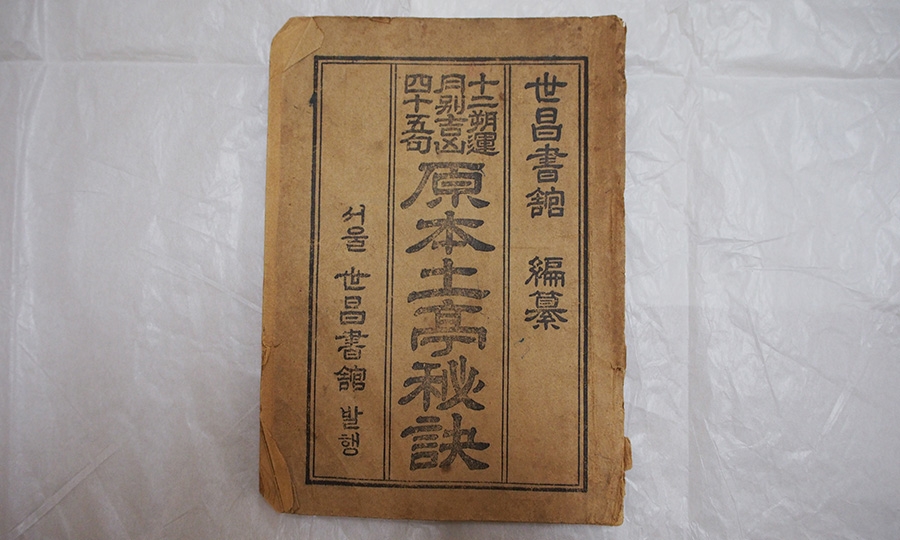 世昌書館 編纂
十二朔運
月別吉凶
四十五句
原本土亭秘訣
서울 世昌書館 발행